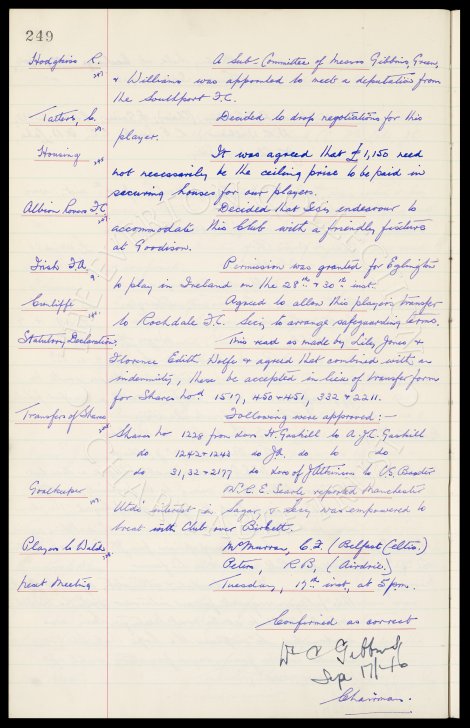 249
Hodgkiss R. A Sub-Committee of Messrs Gibbins, Green,
& Williams was appointed to meet a deputation from
the Southport F.C.
Tatters, C. Decided to drop negotiations for this
player.
Housing It was agreed that £1,150 need
not necessarily be the ceiling price to be paid in
securing houses for our players.
Albion Rovers F.C. Decided that Secy endeavour to
accommodate this Club with a friendly fixture
at Goodison.
Irish F.A. Permission was granted for Eglington
to play in Ireland on the 28th & 30th inst.
Cunliffe Agreed to allow this players transfer
to Rochdale F.C. Secy to arrange safeguarding terms.
Statutory Declaration. This read as made by Lily Jones &
Florence Edith Wolfe & agreed that combined with an
indemnity, these be accepted in lieu of transfer forms
for Shares Nod 1517, 450 & 451, 332 & 2211.
Transfers of Shares Following were approved:—
Shares No 1228 from Exors H. Gaskill to A. J. C. Gaskill
do 1242 & 1243 do JR. do to do
do 31, 32 & 2177 do Exors of J. Atkinson to V.S. Baxter
Goalkeeper Mr. E. E. Searle reported Manchester
Utds interest in Sagar, & Secy was empowered to
treat with Club over Birkett.
Players to Watch McMurran, C.F. (Belfast Celtic.)
Peters, R.B, (Airdrie.)
Next Meeting Tuesday, 17th inst, at 5pm.
Confirmed as correct
W C Gibbins
Sep 17/46
Chairman.